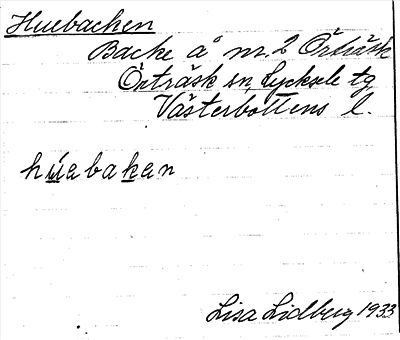 Huebacken
Backe å nr 2 Örträsk
Örträsk sn, Lycksele tg
Västerbottens l.
húabakan
Lisa Lidberg 1933